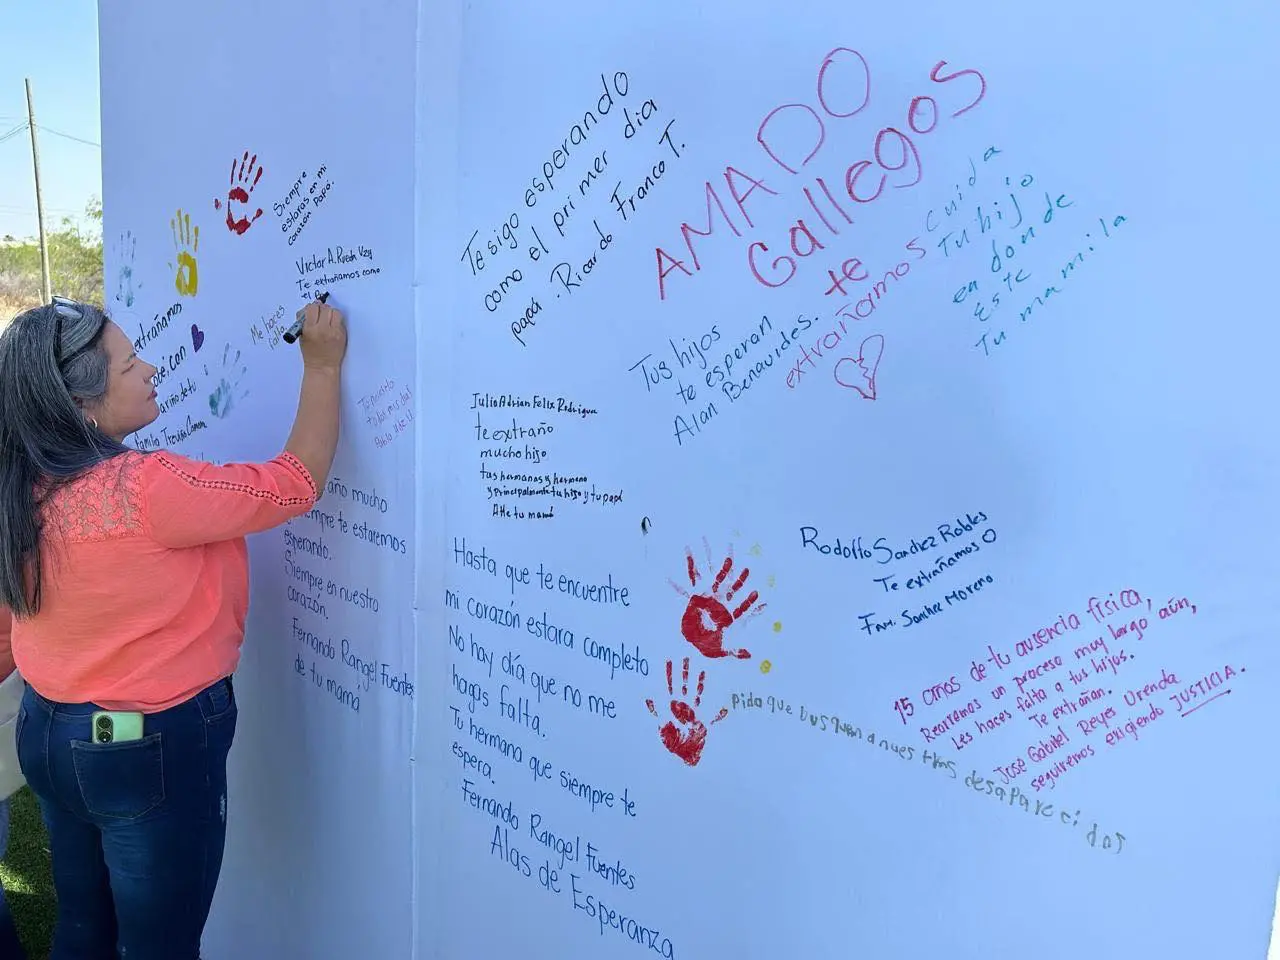 Siempre
estaras en mi
corazón Papá.
Victor A. Rueda
Te extrañamos como
el
Me haces
falta
extrañamos
con
cariño de tu
familia Treviño
mucho
siempre te estaremos
esperando.
Siempre en nuestro
corazón.
Fernando Rangel Fuentes
de tu mamá
Te sigo esperando
como el primer dia
papá. Ricardo Franco T.
AMADO
Gallegos
te
extrañamos
cuida
Tu hijo
en donde
Éste
Tu mamila
Tus hijos
te esperan
Alan Benavides.
Julio Adrian Felix Rodriguez
te extraño
mucho hijo
tus hermanas y hermano
y principalmente tu hijo y tu papá
Atte tu mamá
Hasta que te encuentre
mi corazón estara completo
No hay día que no me
hagas falta.
Tu hermana que siempre te
espera.
Fernando Rangel Fuentes
Alas de Esperanza
Rodolfo Sanchez Robles
Te extrañamos
Fam. Sanchez Moreno
15 años de tu ausencia física,
Recorremos un proceso muy largo aún,
Les haces falta a tus hijos.
Te extrañan.
José Gabriel Reyes Urenda
seguiremos exigiendo JUSTICIA.
Pido que busquen a nuestros desaparecidos